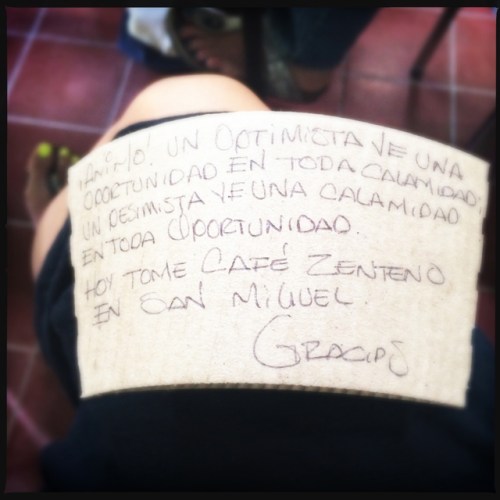 ¡ANIMO! UN OPTIMISTA VE UNA
OPORTUNIDAD EN TODA CALAMIDAD;
UN PESIMISTA VE UNA CALAMIDAD
EN TODA OPORTUNIDAD.
HOY TOME CAFÉ ZENTENO
EN SAN MIGUEL.
GRACIAS